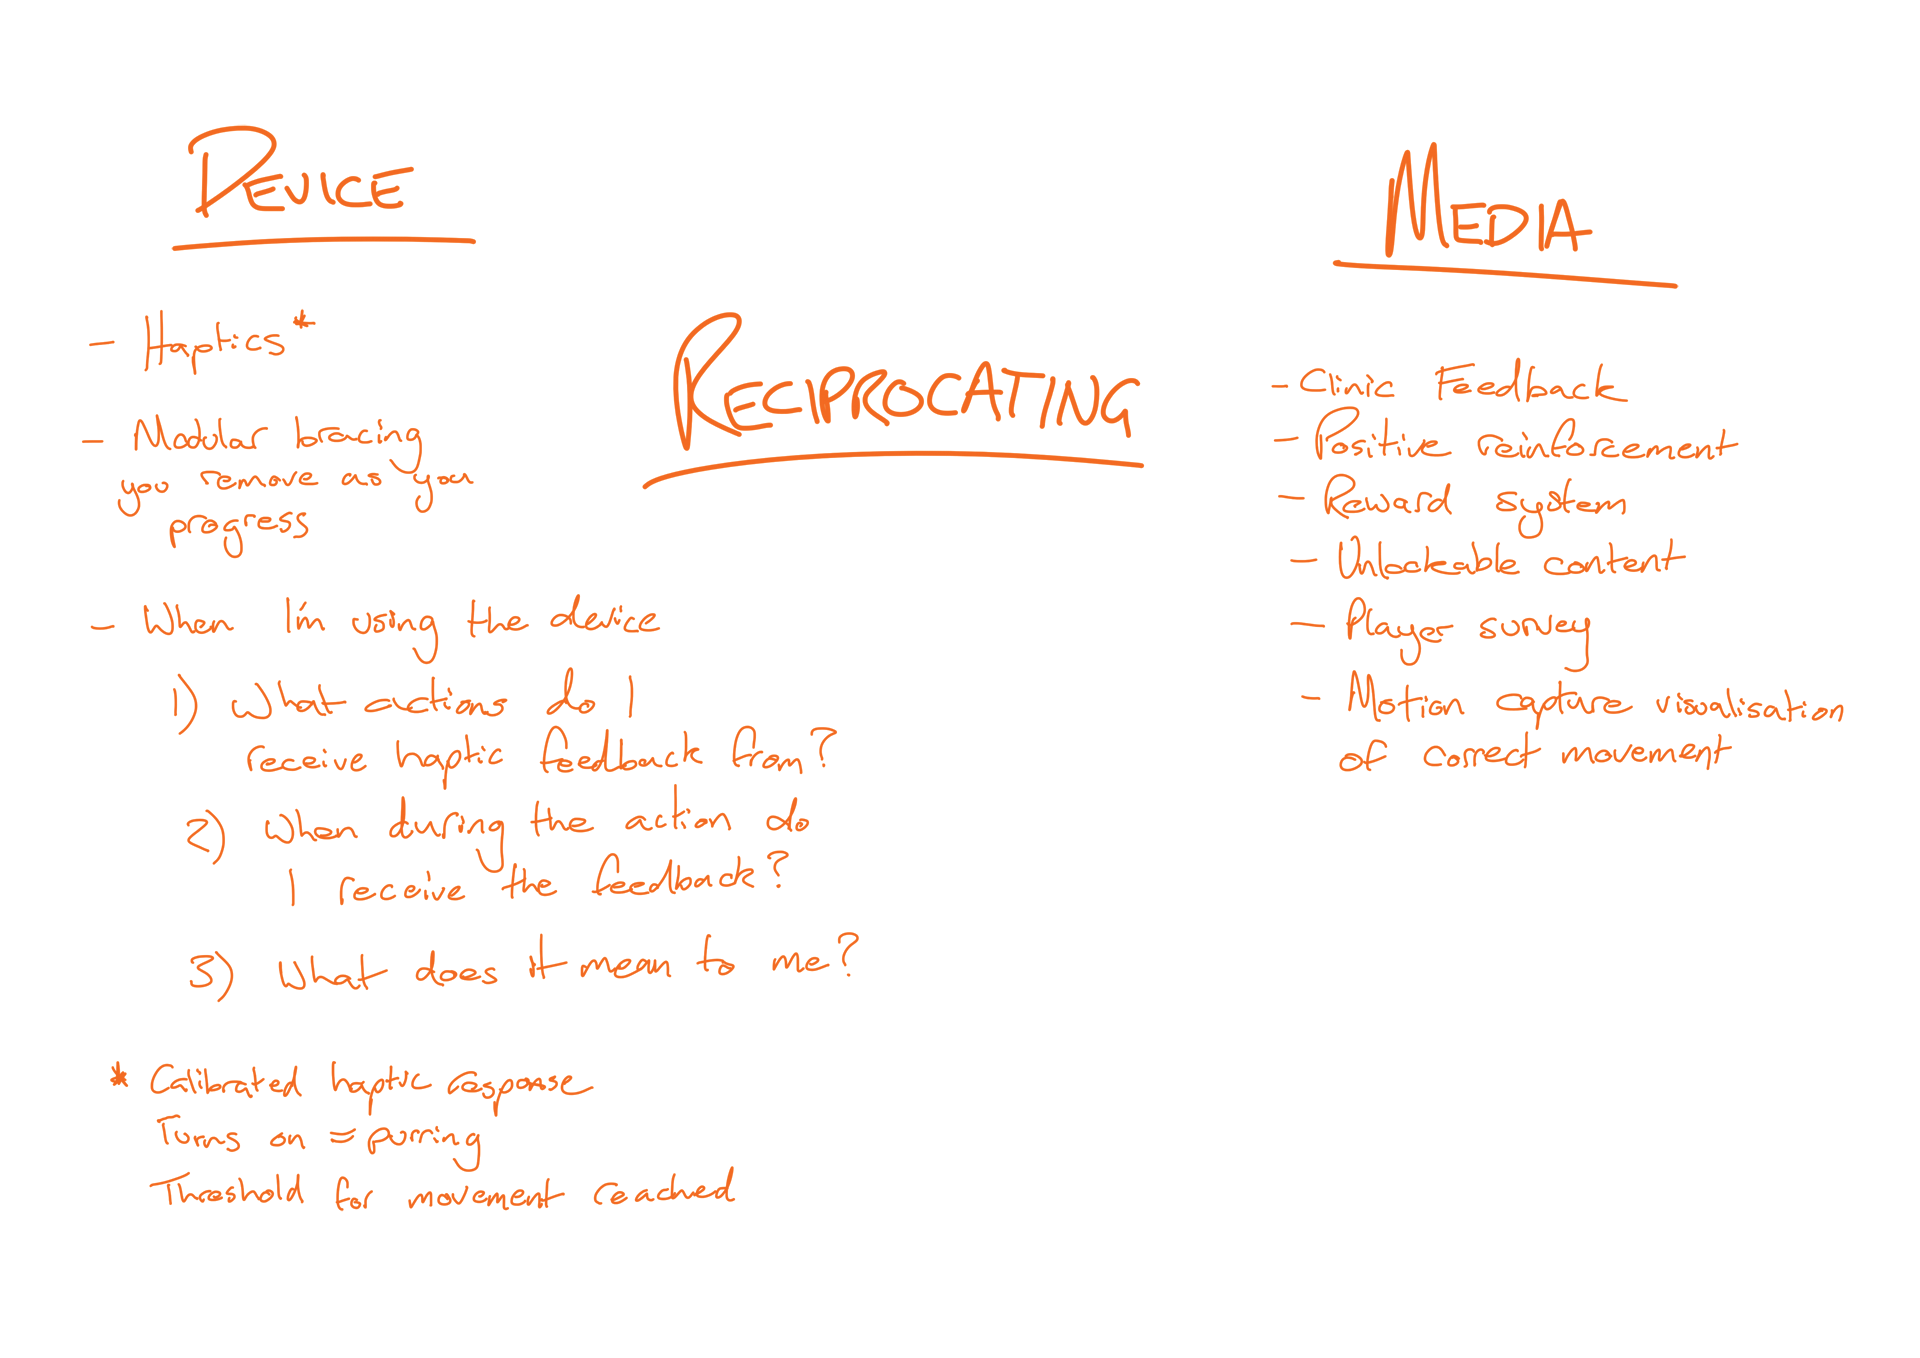 DEVICE
- Haptics*
- Modular bracing
you remove as you
progress
- When I'm using the device
1) What actions do I
receive haptic feedback from?
2) When during the action do
I receive the feedback?
3) What does it mean to me?
* Calibrated haptic response
Turns on = purring
Threshold for movement reached
RECIPROCATING
MEDIA
- Clinic Feedback
- Positive reinforcement
- Reward system
- Unlockable content
- Player survey
- Motion capture visualisation
of correct movement